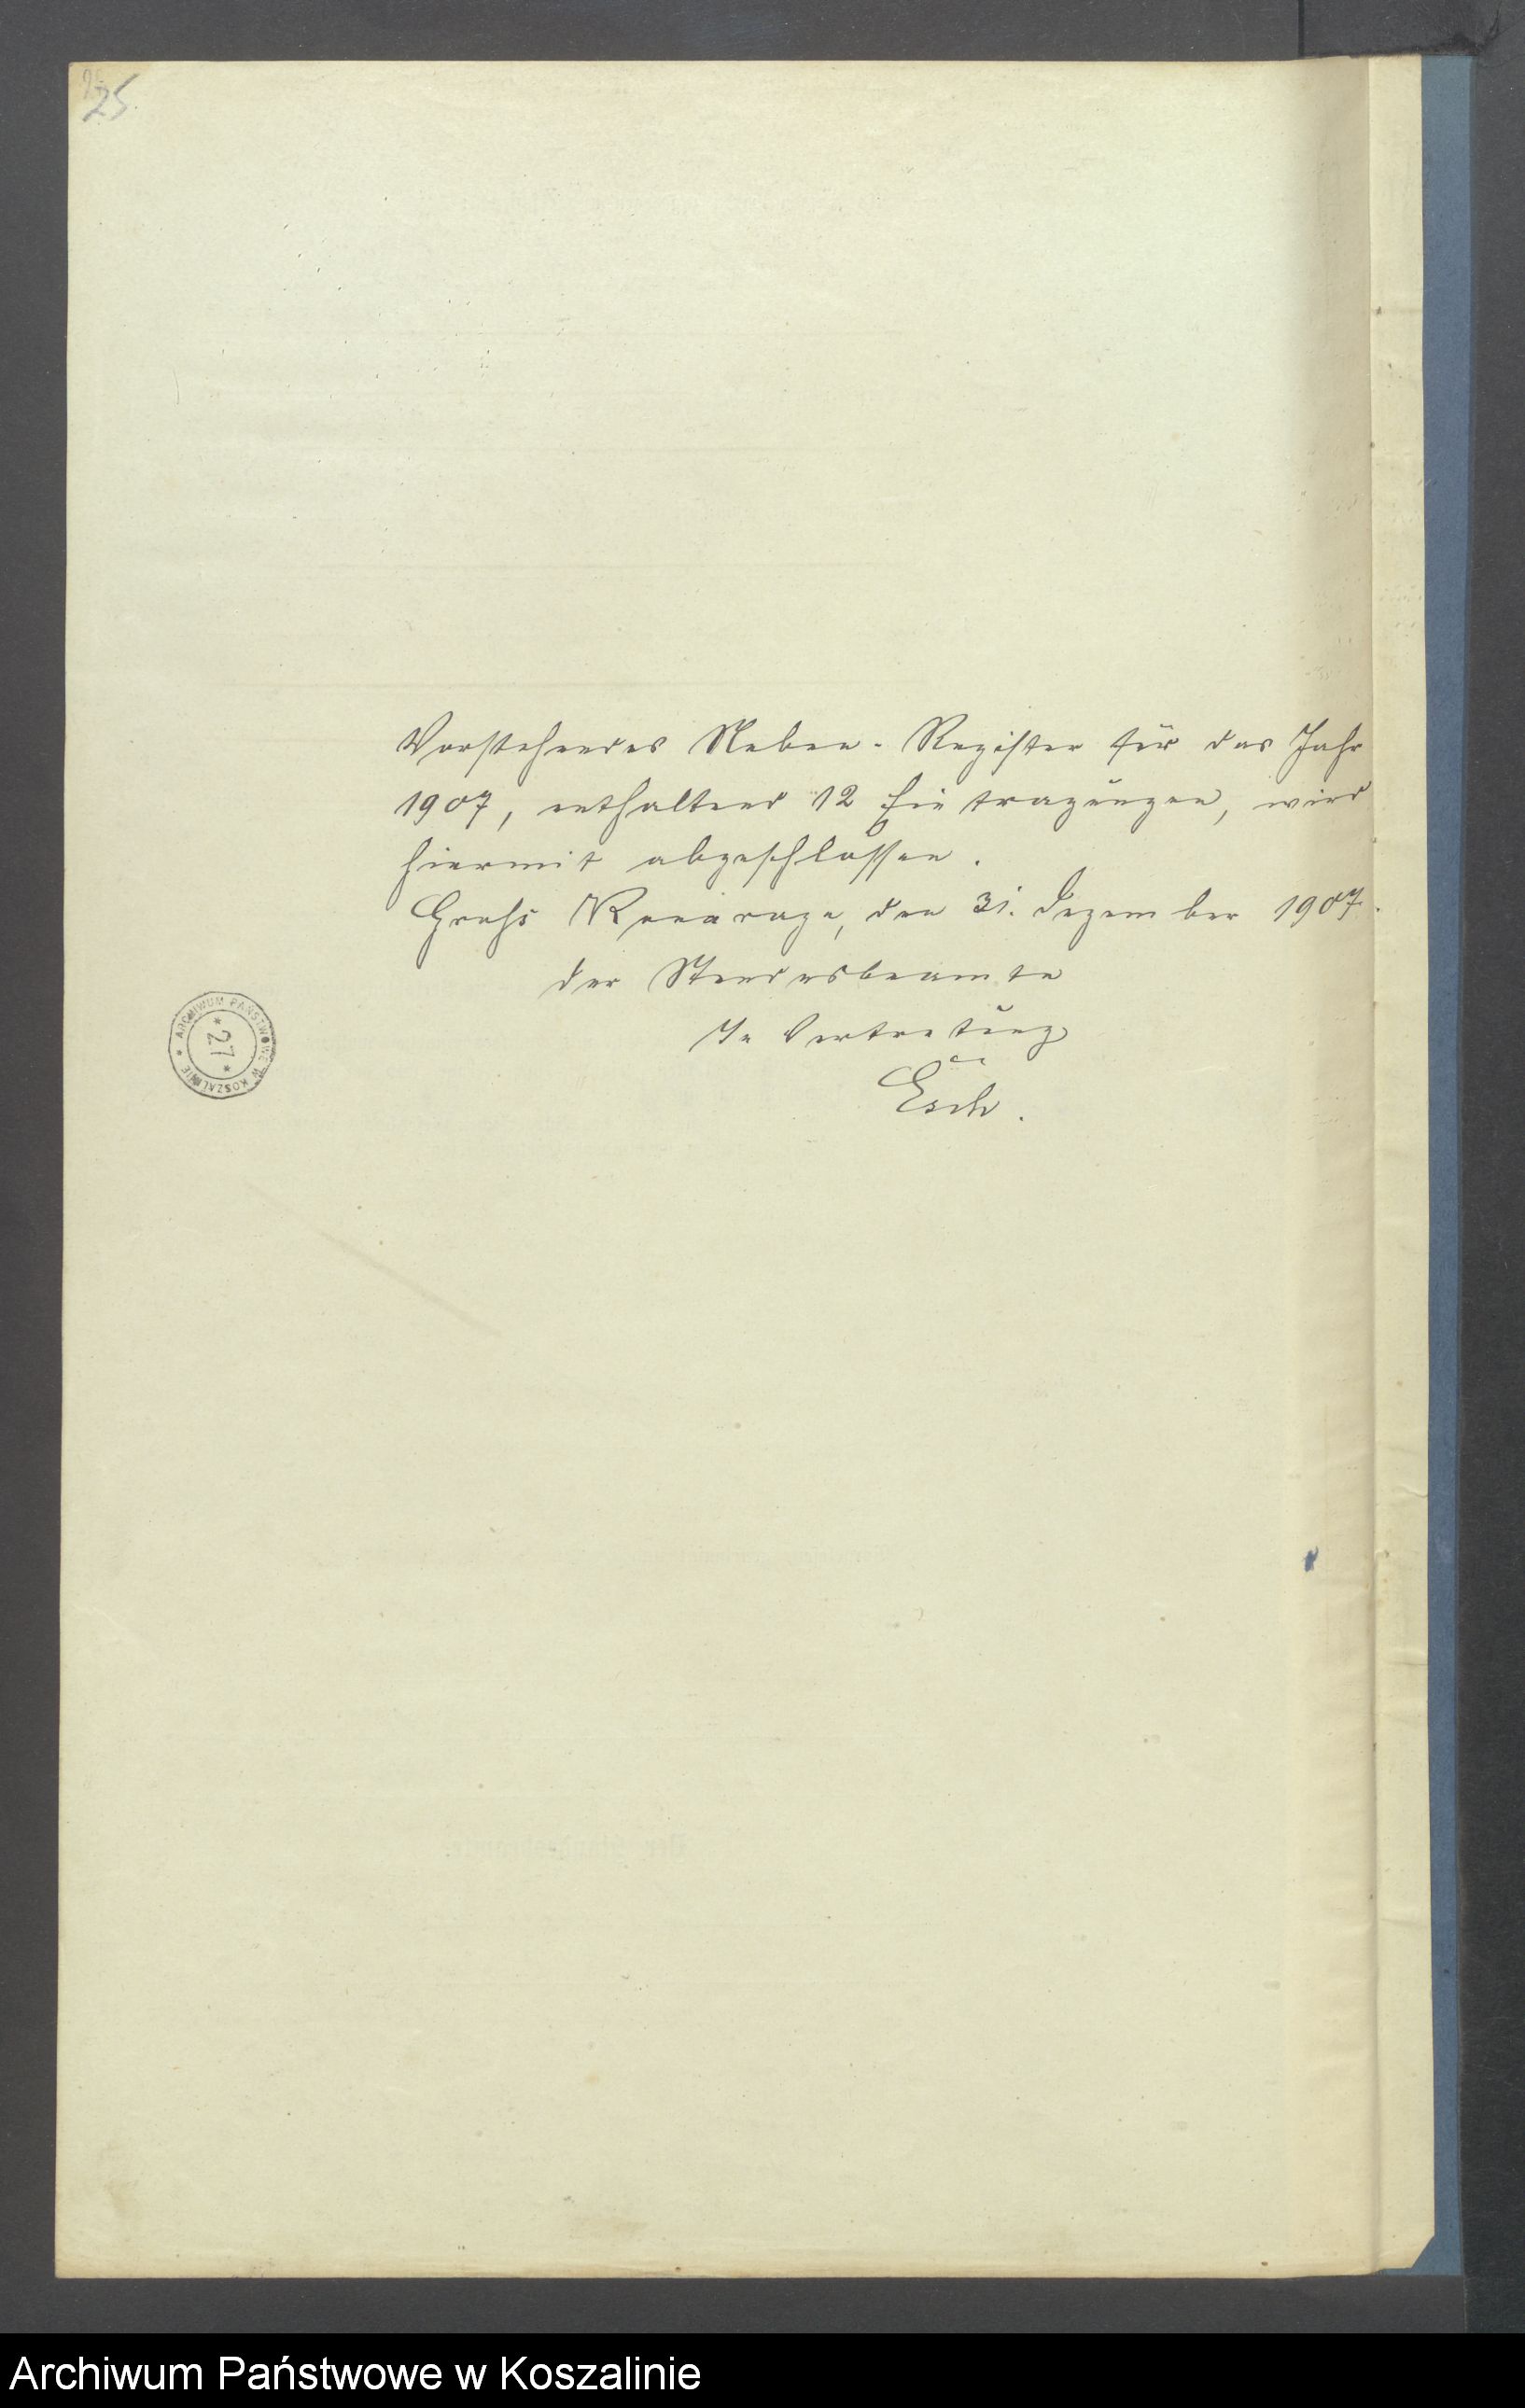 25
Vorstehendes Neben-Register für das Jahr
1907, enthaltend 12 Eintragungen, wird
hiermit abgeschlossen.
Groß den 31. Dezember 1907.
der Standesbeamte
In Vertretung
Esch.
ARCHIWUM PAŃSTWOWE W KOSZALINIE
* 27 *
Archiwum Państwowe w Koszalinie